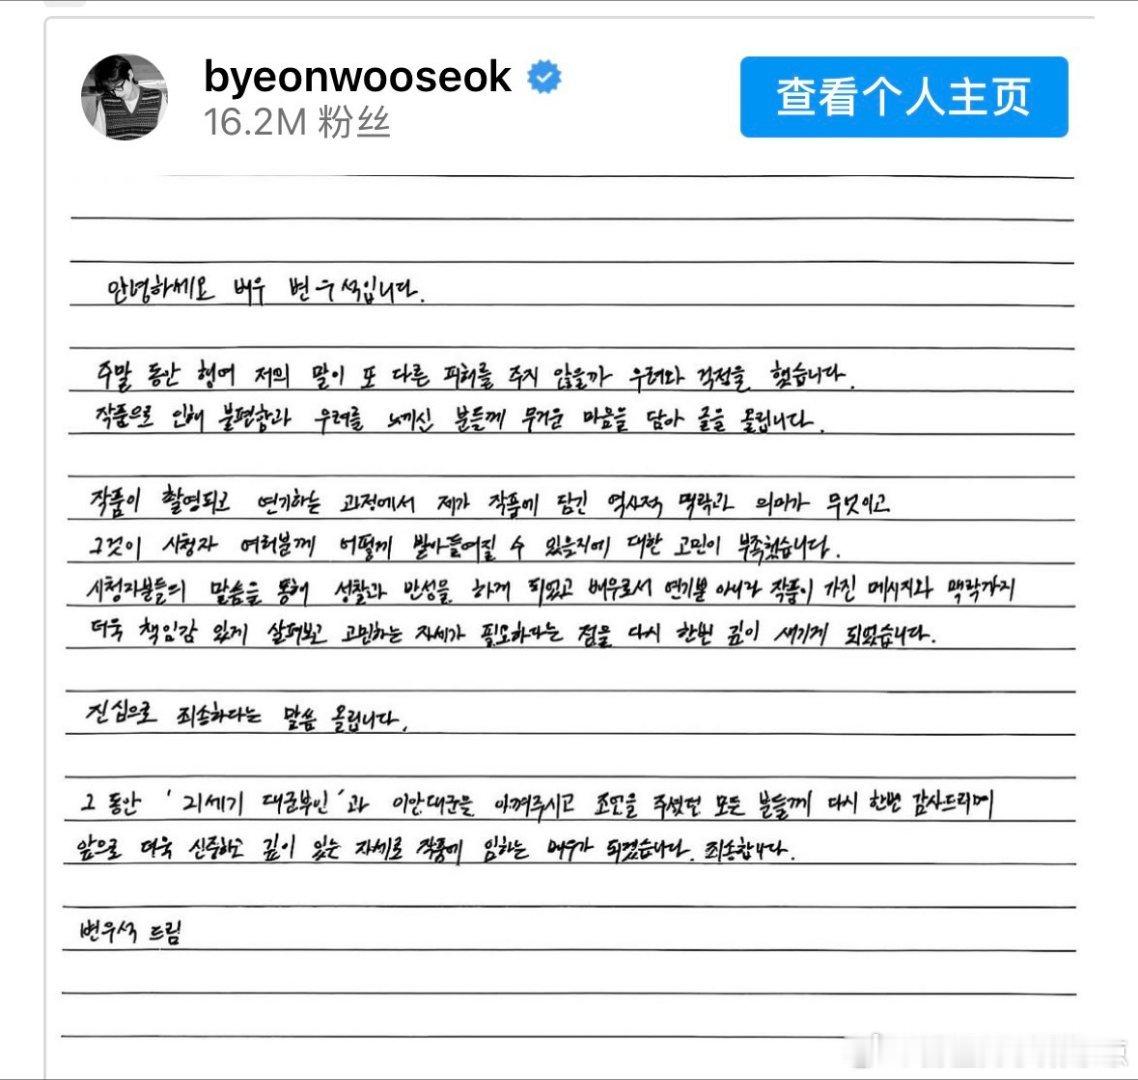 byeonwooseok
查看个人主页
16.2M 粉丝
안녕하세요 배우 변우석입니다.
주말 동안 혹여 저의 말이 또 다른 피해를 주지 않을까 우려와 걱정을 했습니다.
작품으로 인해 불편함과 우려를 느끼신 분들께 무거운 마음을 담아 글을 올립니다.
작품이 촬영되고 연기하는 과정에서 제가 작품에 담긴 역사적 맥락과 의미가 무엇이고
그것이 시청자 여러분께 어떻게 받아들여질 수 있을지에 대한 고민이 부족했습니다.
시청자분들의 말씀을 통해 성찰과 반성을 하게 되었고 배우로서 연기뿐 아니라 작품이 가진 메시지와 맥락까지
더욱 책임감 있게 살펴보고 고민하는 자세가 필요하다는 점을 다시 한번 깊이 새기게 되었습니다.
진심으로 죄송하다는 말씀 올립니다.
그 동안 '21세기 대군부인'과 이안대군을 아껴주시고 조언을 주셨던 모든 분들께 다시 한번 감사드리며
앞으로 더욱 신중하고 깊이 있는 자세로 작품에 임하는 배우가 되겠습니다. 죄송합니다.
변우석 드림